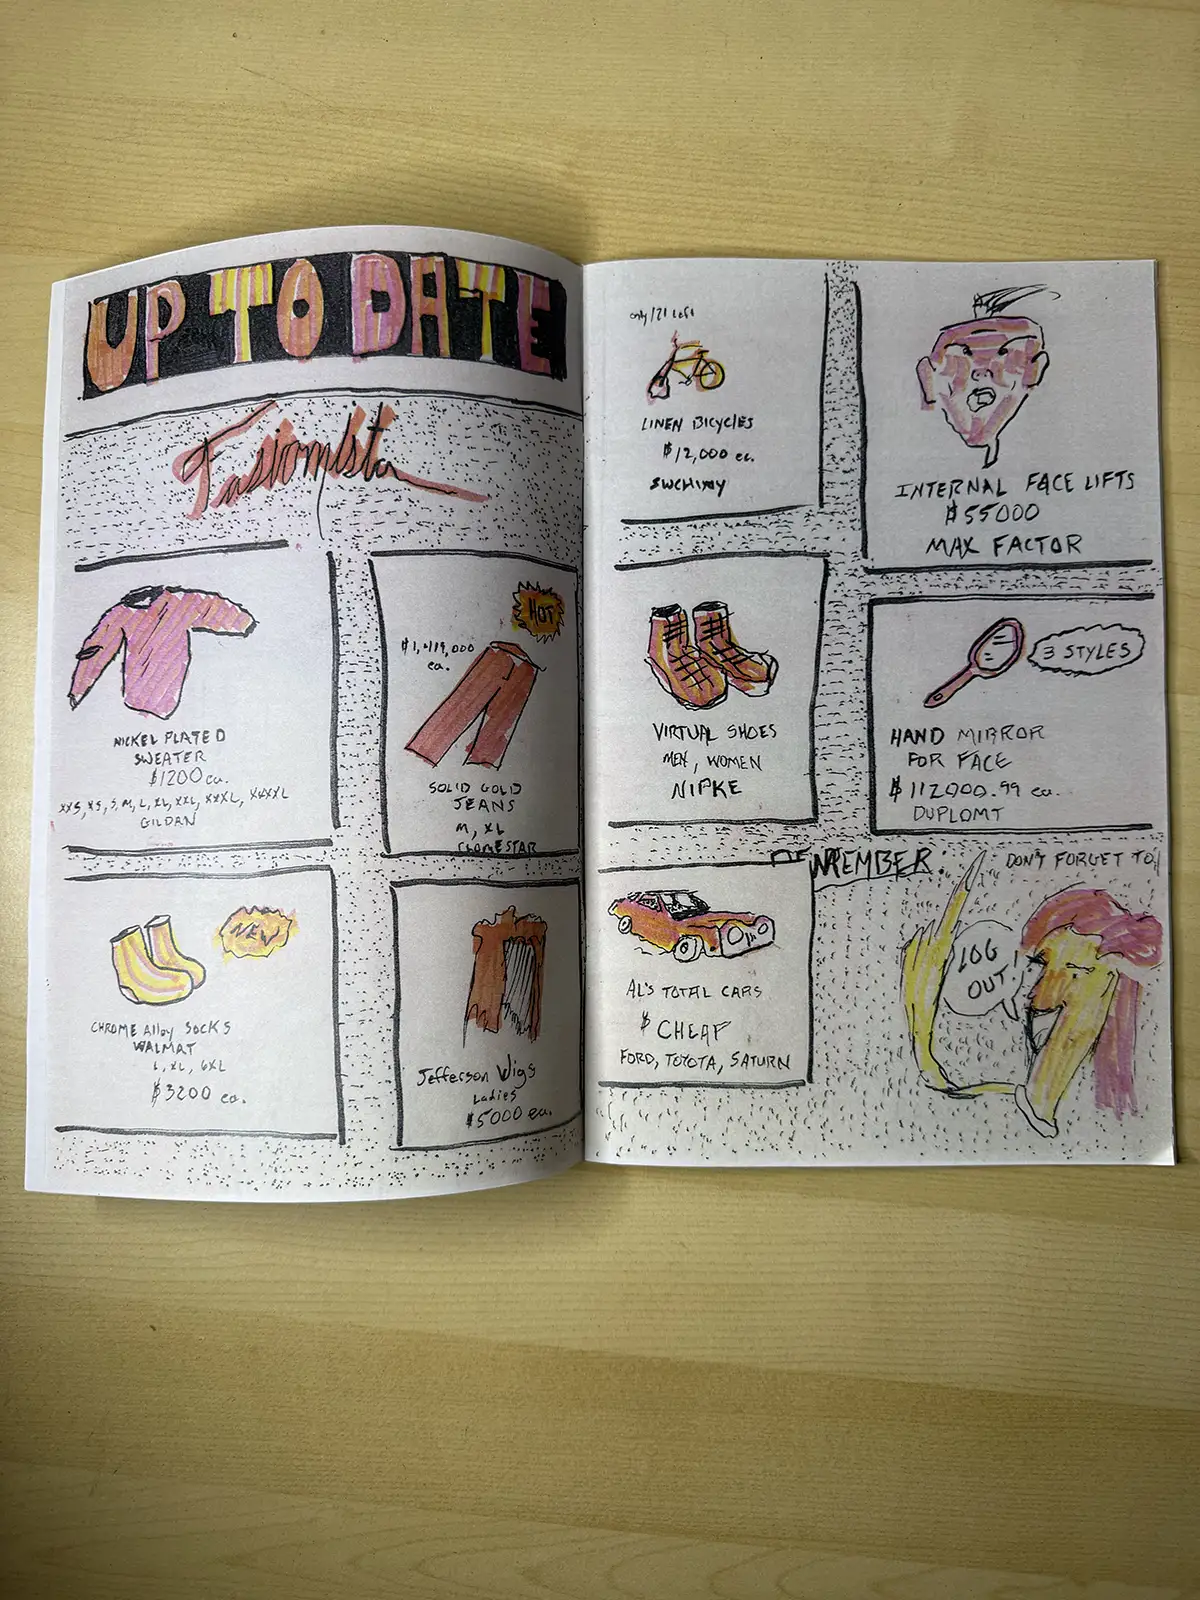 UP TO DATE
Fasionista
NICKEL PLATED
SWEATER
$1200 ea.
XXS, XS, S, M, L, XL, XXL, XXXL, XXXXL
GILDAN
HOT
$1,419,000
ea.
SOLID GOLD
JEANS
M, XL
NEW
CHROME Alloy SOCKS
WALMAT
L, XL, 6XL
$3200 ea.
Jefferson Wigs
Ladies
$5000 ea.
only 121 left
LINEN BICYCLES
$12,000 ea.
INTERNAL FACE LIFTS
$55000
MAX FACTOR
VIRTUAL SHOES
MEN, WOMEN
NIPKE
3 STYLES
HAND MIRROR
FOR FACE
$112000.99 ea.
DUPLOMT
AL'S TOTAL CARS
$ CHEAP
FORD, TOYOTA, SATURN
DON'T FORGET TO
LOG
OUT!